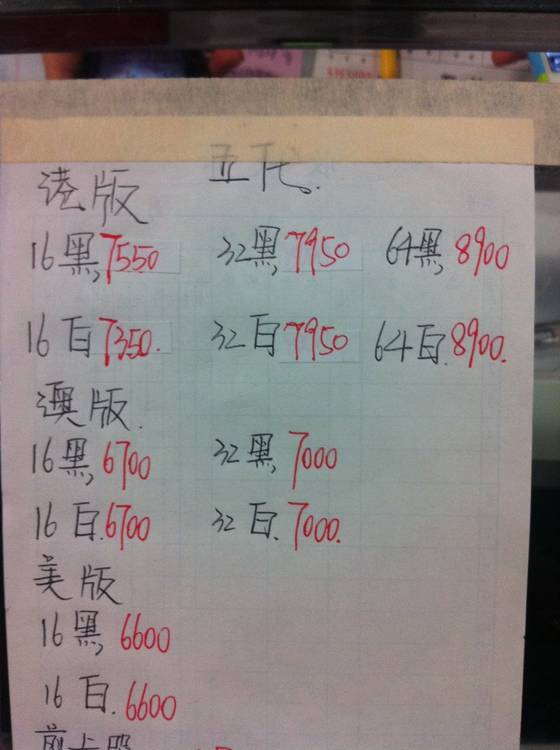 五代.
港版
16黑 7550 32黑 7950 64黑 8900
16白 7350. 32白 7950 64白. 8900.
澳版.
16黑 6700 32黑 7000
16白. 6700 32白. 7000.
美版
16黑 6600
16白. 6600
剪卡器